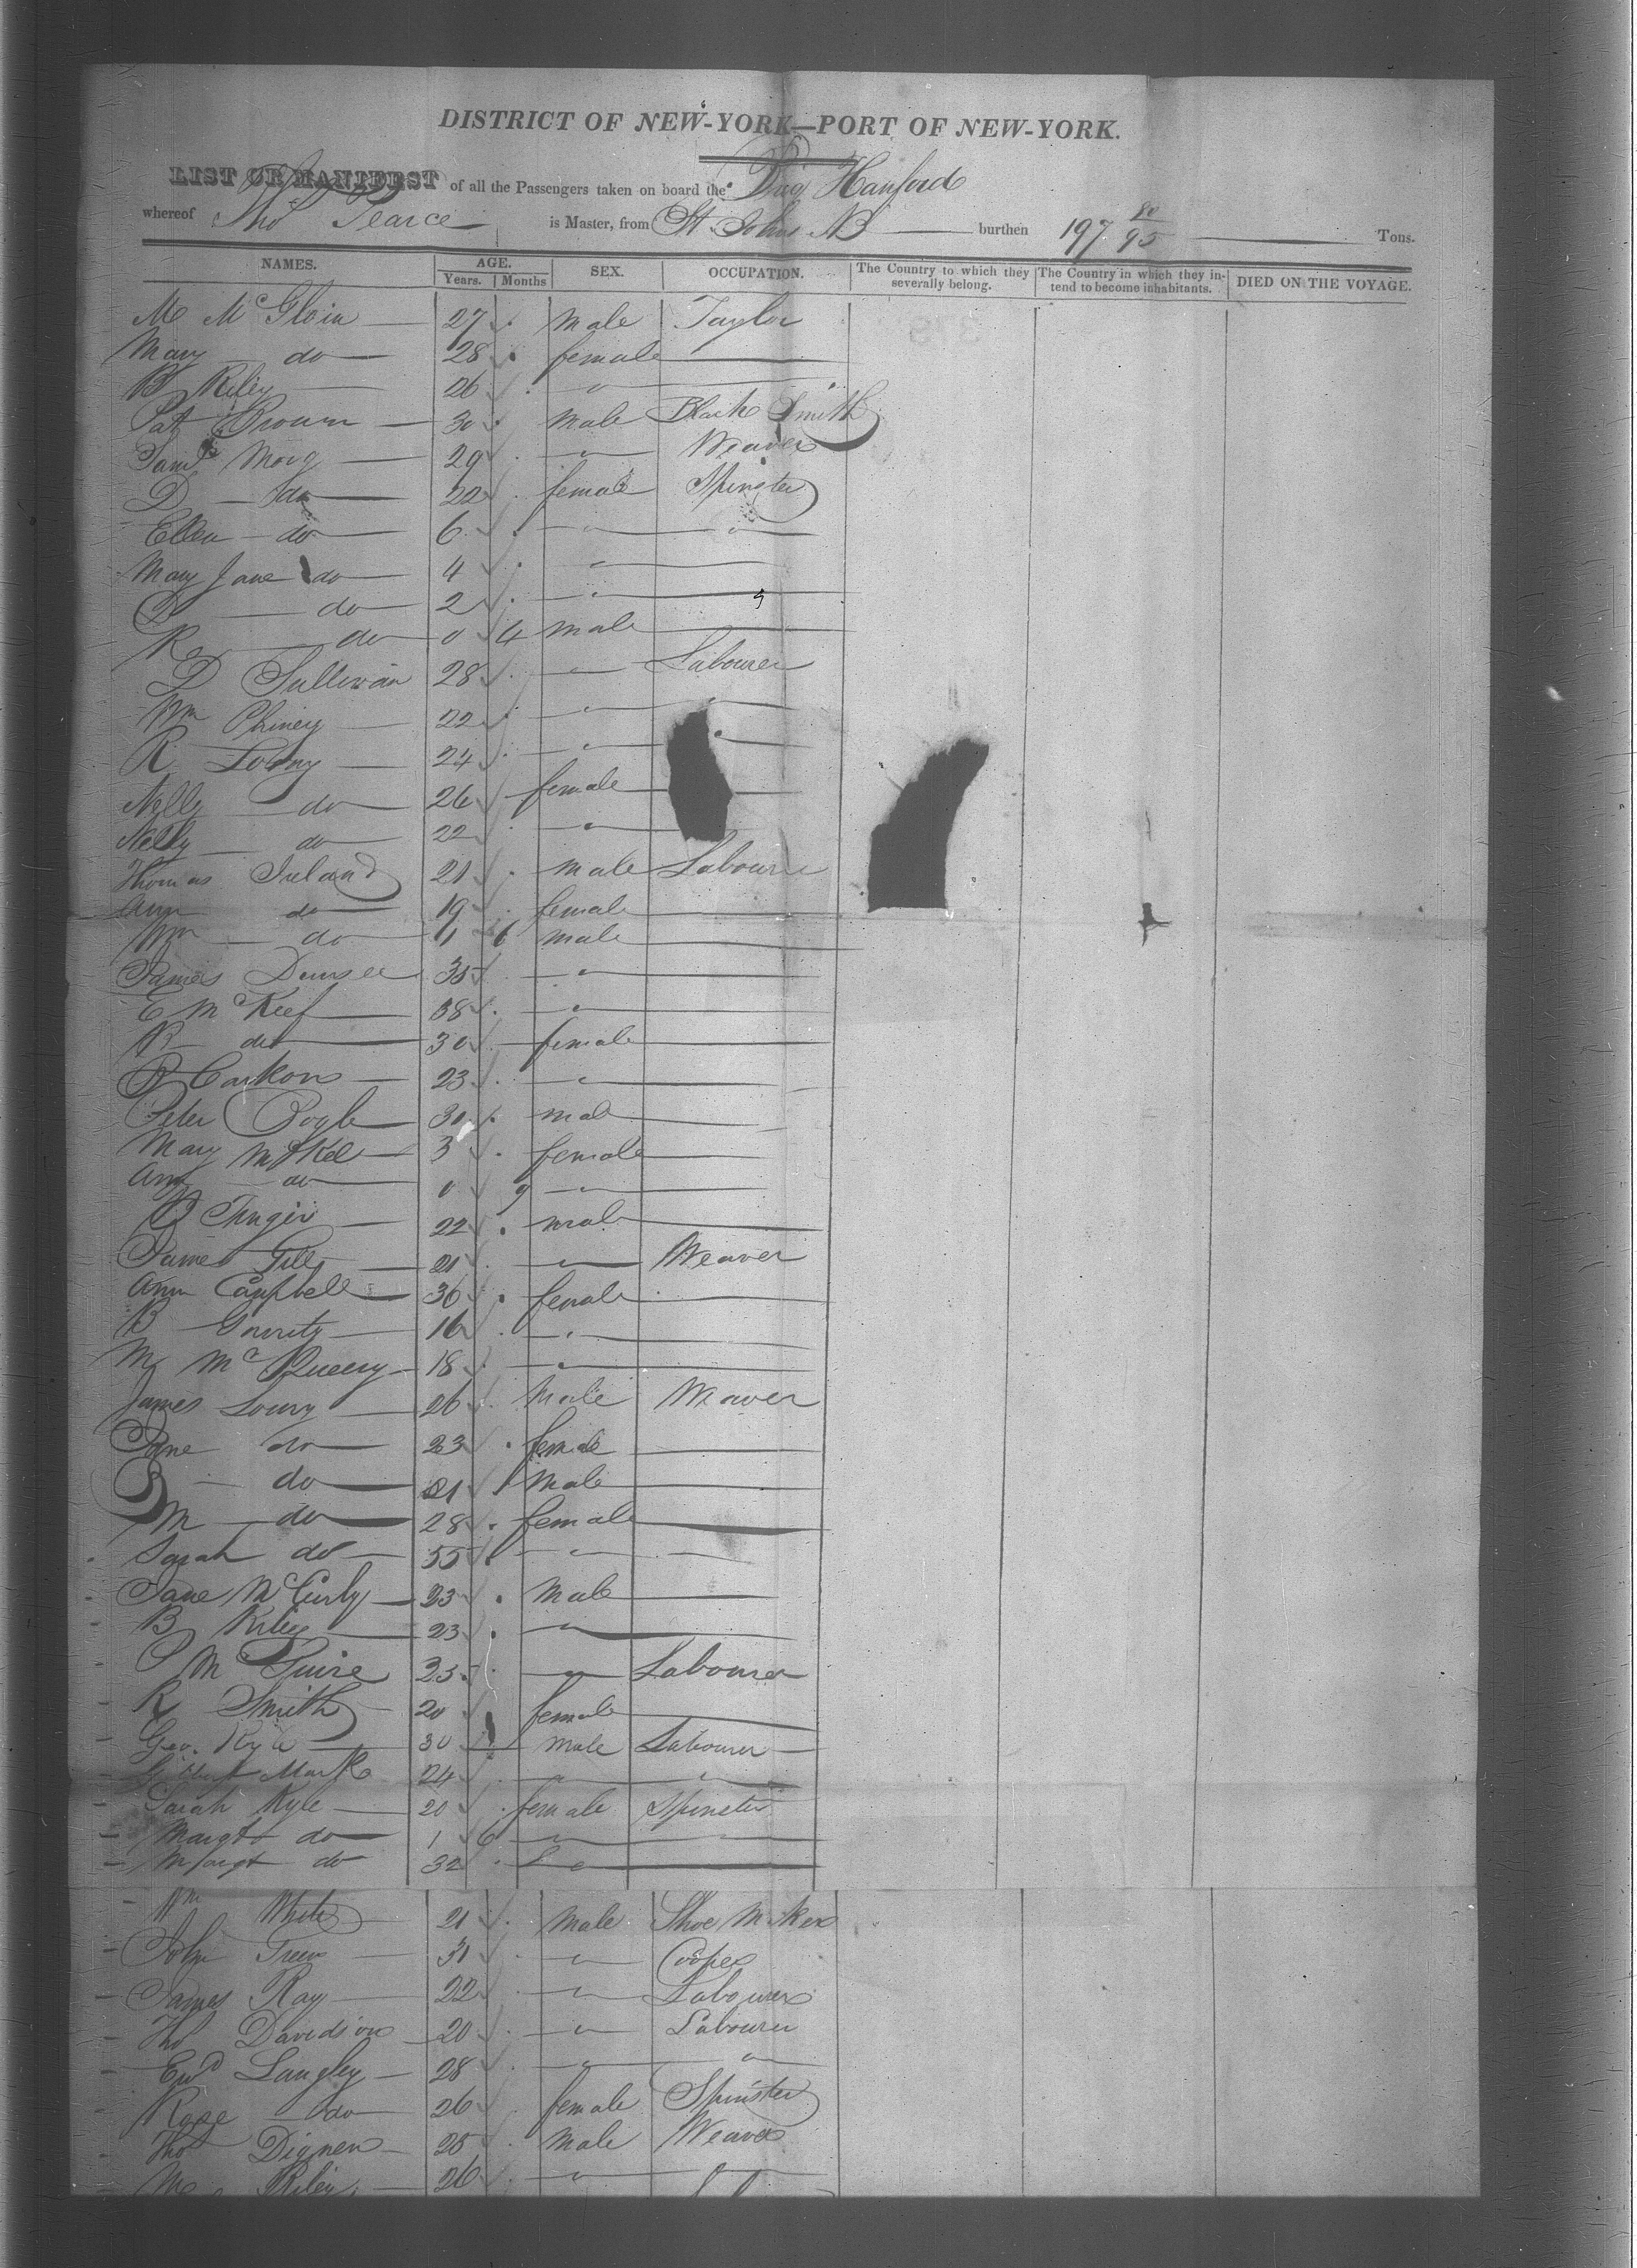 DISTRICT OF NEW-YORK—PORT OF NEW-YORK.
LIST OR MANIFEST of all the Passengers taken on board the Brig Hanford
whereof Thos Pearce is Master, from St. Johns NB burthen 197 80/95 Tons.
NAMES. AGE. Years. Months SEX. OCCUPATION. The Country to which they severally belong. The Country in which they intend to become inhabitants. DIED ON THE VOYAGE.
M McGloin 27 male Taylor
Mary do 28 female
B Riley 26 "
Pat Brown 30 male Black Smith
Saml 29 " Weaver
D do 22 female Spinster
Ellen do 6 " "
Mary Jane do 4 "
do 2 "
R do 0 4 male
D Sullivan 28 " Labourer
Wm 22 " "
R 24 "
Nelly do 26 female
Nelly do 22 "
Thomas Ireland 21 male Labourer
Ann do 19 female
Wm do 1 6 male
James 35 "
E McKeef 38 "
R do 30 female
23 "
Peter Boyle 30 male
Mary 3 female
Ann do 0 9 "
22 male
James Gill 21 " Weaver
Ann Campbell 36 female
B 16 "
M 18 "
James Loury 26 male Weaver
Jane do 23 female
do 21 male
M do 28 female
Sarah do 55 "
Jane McCurly 23 male
B Riley 23 "
M Guire 25 " Labourer
R Smith 20 female
Geo. Kyle 30 male Labourer
24 " "
Sarah Kyle 20 female Spinster
Margt do 1 6 "
Margt do 32 "
Wm White 21 male Shoe Maker
John 31 " Cooper
James Ray 22 " Labourer
Tho Davidson 20 " Labourer
Ewd Langley 28 " "
Rose do 26 female Spinster
Tho Dignen 25 male Weaver
M Riley 26 "